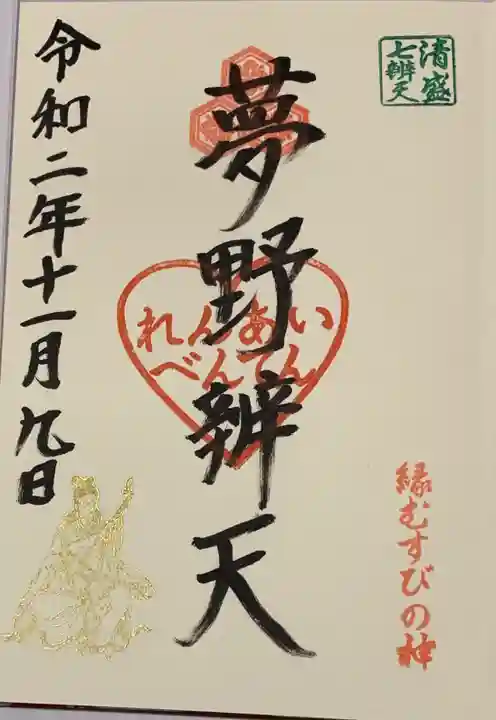 清盛
七辨天
縁むすびの神
夢野辨天
れんあい
べんてん
令和二年十一月九日